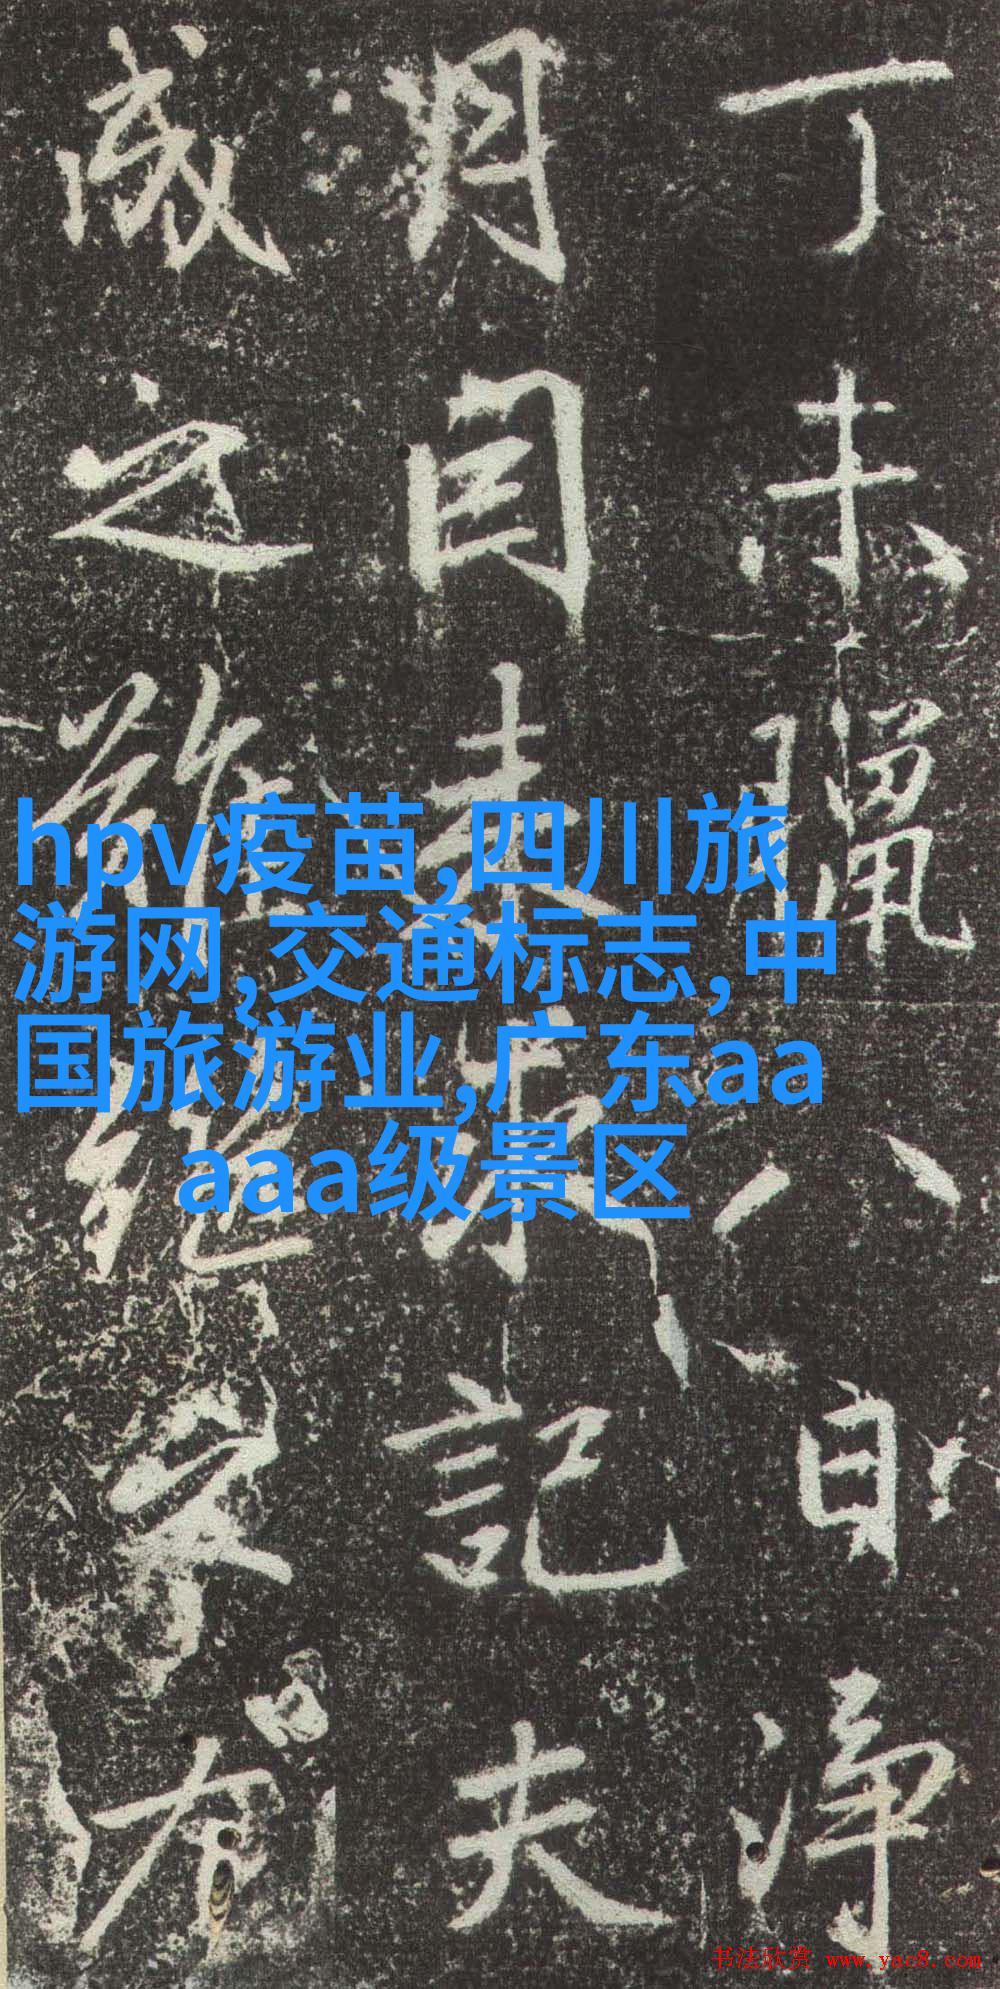 丁未臘八日淨
月因未來記夫
成之難絕學者
hpv疫苗,四川旅
游网,交通标志,中
国旅游业,广东aa
aaa级景区
书法欣赏 www.yac8.com